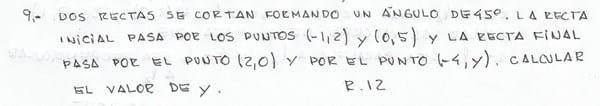 9.- DOS RECTAS SE CORTAN FORMANDO UN ÁNGULO DE 45º. LA RECTA
INICIAL PASA POR LOS PUNTOS (-1,2) y (0,5) y LA RECTA FINAL
PASA POR EL PUNTO (2,0) Y POR EL PUNTO (-4,y). CALCULAR
EL VALOR DE y. R.12